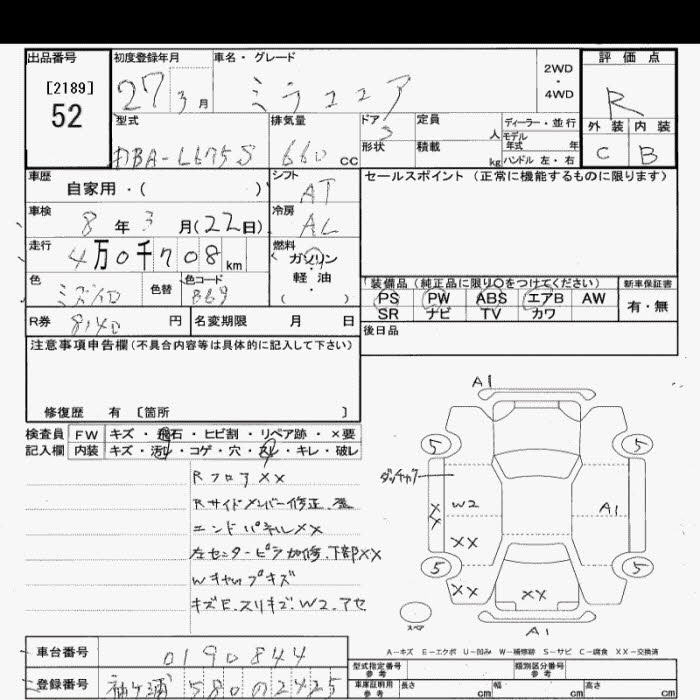 出品番号
[2189]
52
初度登録年月
27 3 月
車名・グレード
ミラココア
2WD
・
4WD
評価点
R
外装 内装
C B
型式
DBA-L675S
排気量
660 cc
ドア
5
形状
定員
人
積載
kg
ディーラー・並行
モデル
年式 年
ハンドル 左・右
車歴
自家用・( )
シフト
AT
車検
8 年 3 月(22日)
冷房
AC
走行
4万0千708km
燃料
ガソリン
軽油
( )
色
ミズイロ
色替
色コード
B69
R券
8140 円
名変期限 月 日
セールスポイント(正常に機能するものに限ります)
装備品(純正品に限り○をつけてください)
PS PW ABS エアB AW
SR ナビ TV カワ
新車保証書
有・無
後日品
注意事項申告欄(不具合内容等は具体的に記入して下さい)
修復歴 有〔箇所 〕
検査員 FW キズ・飛石・ヒビ割・リペア跡・×要
記入欄 内装 キズ・汚レ・コゲ・穴・スレ・キレ・破レ
Rフロア××
Rサイドメンバー修正
エンドパネル××
左センターピラー修、下部××
Wキャップキズ
キズE.スリキズ.W2.アセ
A1
5
5
ダッチャク
W2
××
A1
××
5
5
××
××
スペア
A1
A-キズ E-エクボ U-凹み W-補修跡 S-サビ C-腐食 XX-交換済
車台番号
0190844
登録番号
袖ヶ浦 580 の 2425
型式指定番号
参考
類別区分番号
参考
車庫証明用
参考
長さ cm
幅 cm
高さ cm